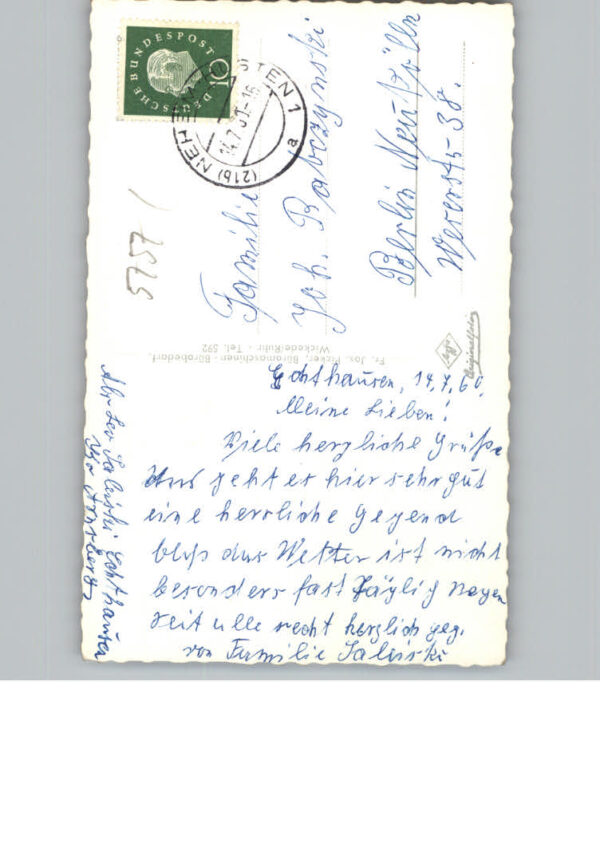 DEUTSCHE BUNDESPOST
10
NEHEIM-HÜSTEN 1
a
(21b)
14.7.60-16
5757
Familie
Joh. Babczynski
Berlin Neukölln
Weserstr 38.
Fr. Jos. Pizker, Büromaschinen - Bürobedarf,
Wickede/Ruhr - Tel. 592
Agfa
Originalfoto
Echthausen, 14.7.60.
Meine Lieben!
Viele herzliche Grüße
Uns geht es hier sehr gut
eine herrliche Gegend
bloß das Wetter ist nicht
besonders fast Täglig Regen
seit alle recht herzlich geg.
von Familie Saleiski
Abs. Leo Saleiski Echthausen
Kr. Arnsberg